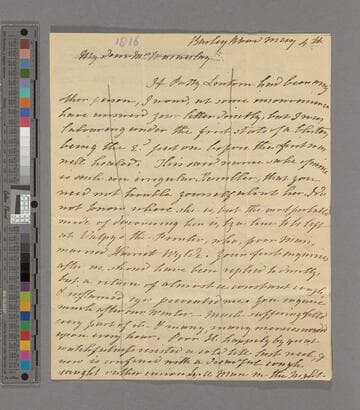 1816
Barley Wood May 4th
My dear Mrs Macaulay
If Patty Lintorn had been any
other person, I would, at some inconvenience
have answered your letter directly, but I was
labouring under the first state of a blister,
being the 2d put on before the first was
well healed. This said nurse
is such an irregular Rambler, that you
need not trouble yourself about her. I do
not know where she is, but the most probable
mode of discovering her is, by a line to be left
at Valpy's the Printer, who, poor man,
married Harriet Wylde. Your first inquiries
after me should have been replied to directly
but a return of almost a constant cough,
& inflamed eyes prevented me. You inquire
much after our Winter. Much suffering filled
every part of it. & many, many mercies
upon every hour. Poor H. happily by great
watchfulness resisted a cold till last week, &
now is confined with a dreadful cough
caught